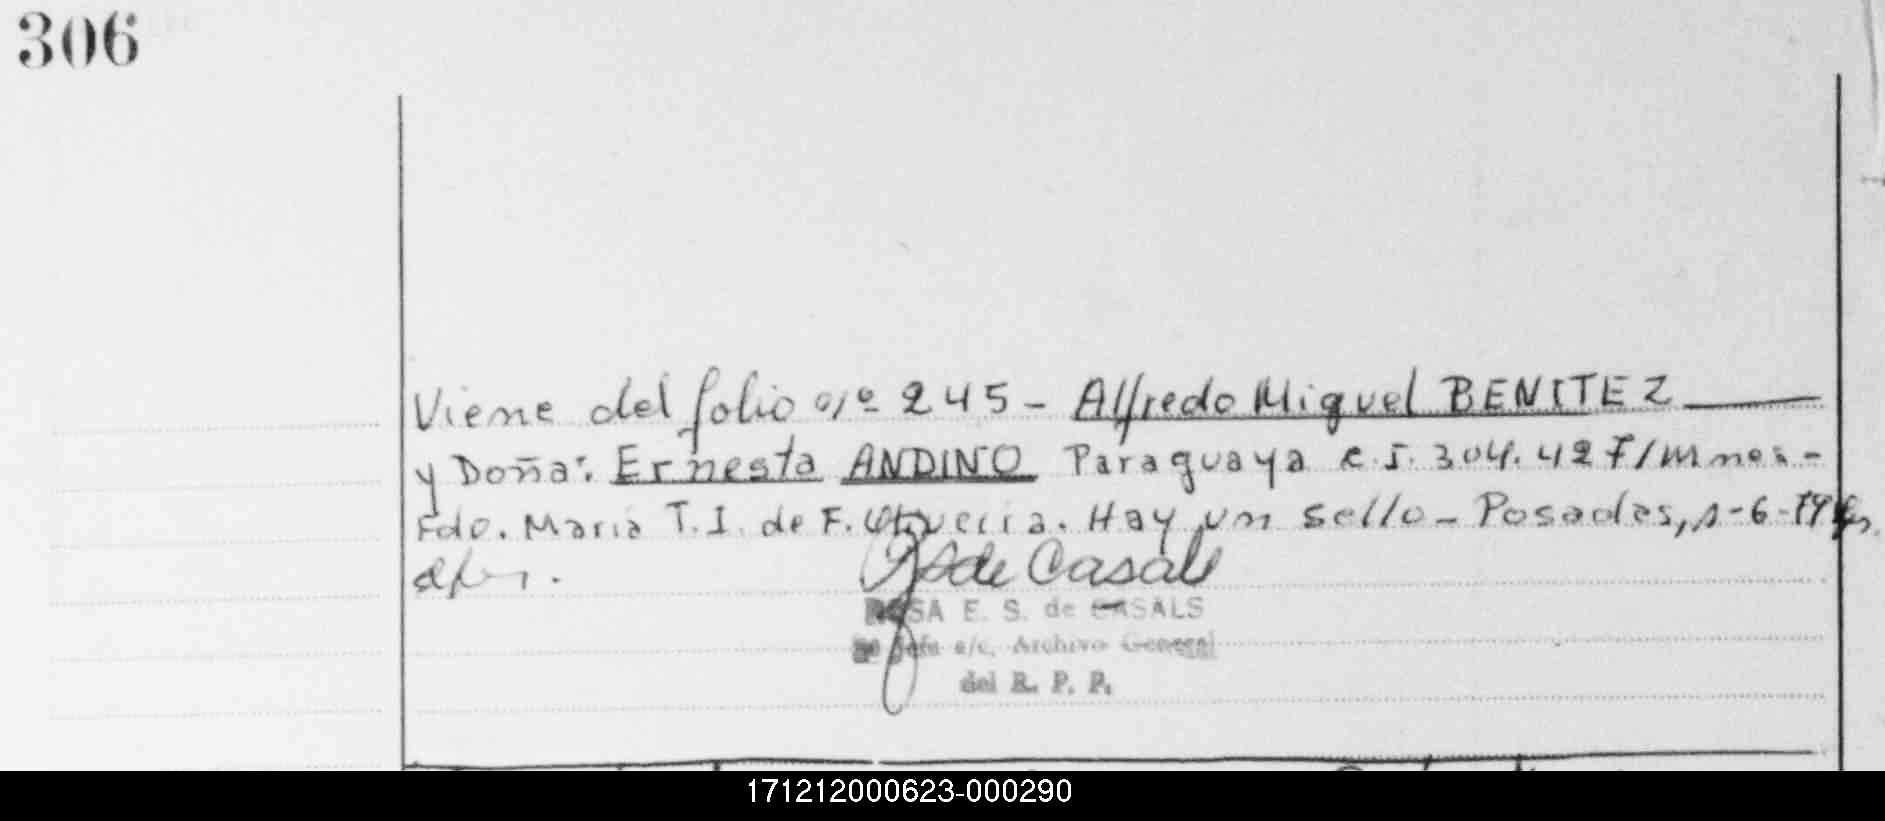 306
Viene del folio nº 245 - Alfredo Miguel BENITEZ
y Doña: Ernesta ANDINO Paraguaya c.I. 304.427/Mnes-
Fdo. Maria T. I. de F. Hay un sello - Posadas, 1-6-79
RSde Casals
ROSA E. S. de CASALS
Jefe a/c. Archivo General
del R. P. P.
171212000623-000290